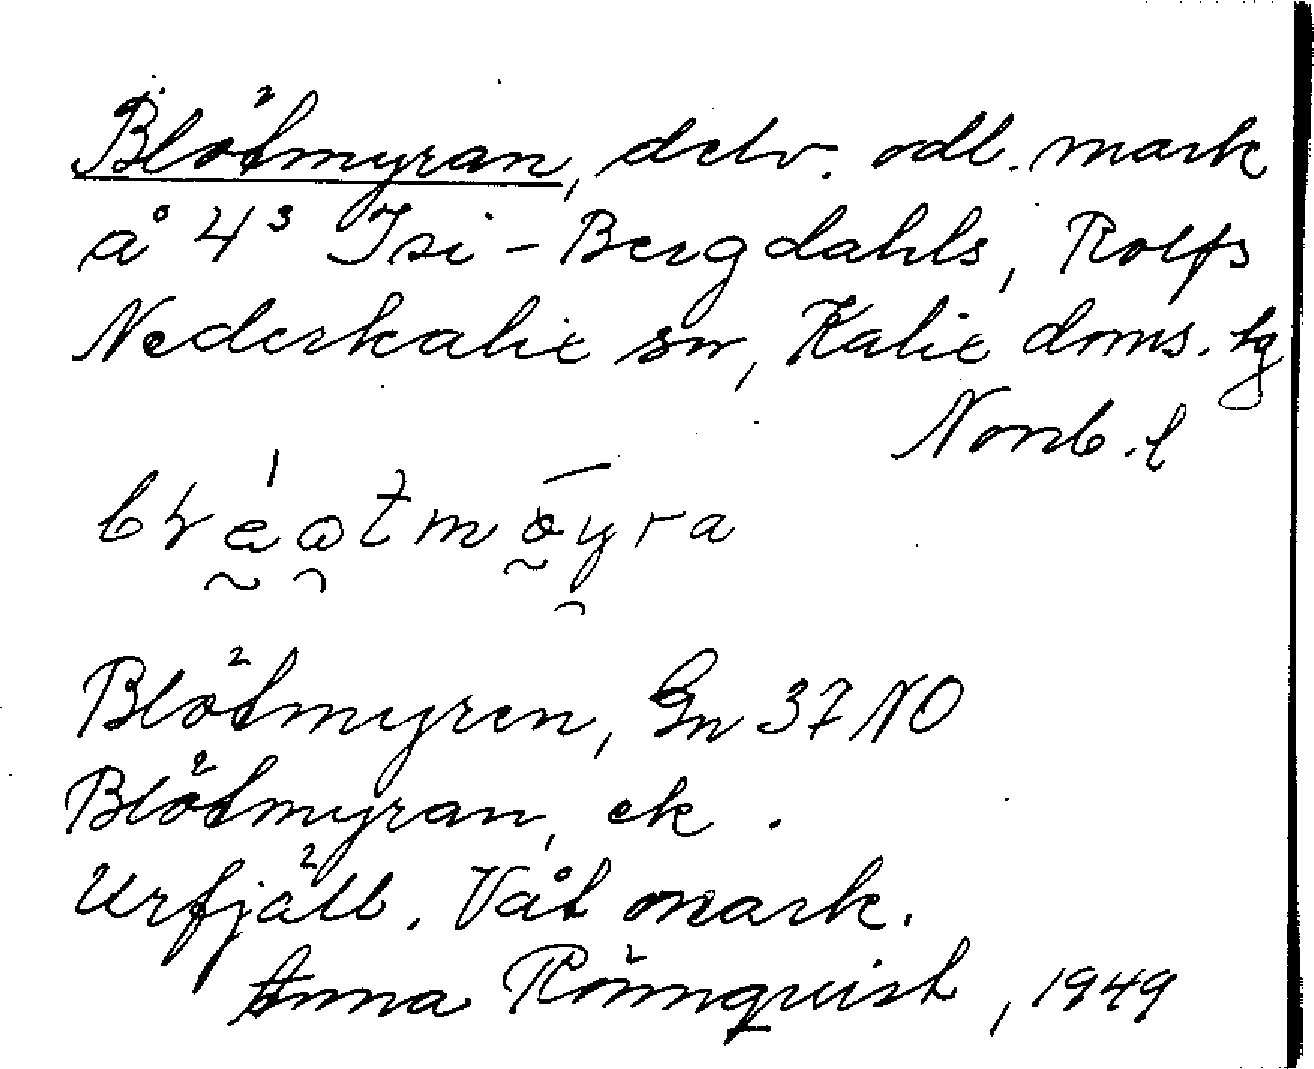 Blötmyran, delv. odl. mark
å 4³ Isi-Bergdahls, Rolfs
Nederkalix sn, Kalix doms. tg
Norrb. l
Blötmyren, Gn 37 NO
Blötmyran, ek.
Urfjäll. Våt mark.
Anna Rönnqvist, 1949